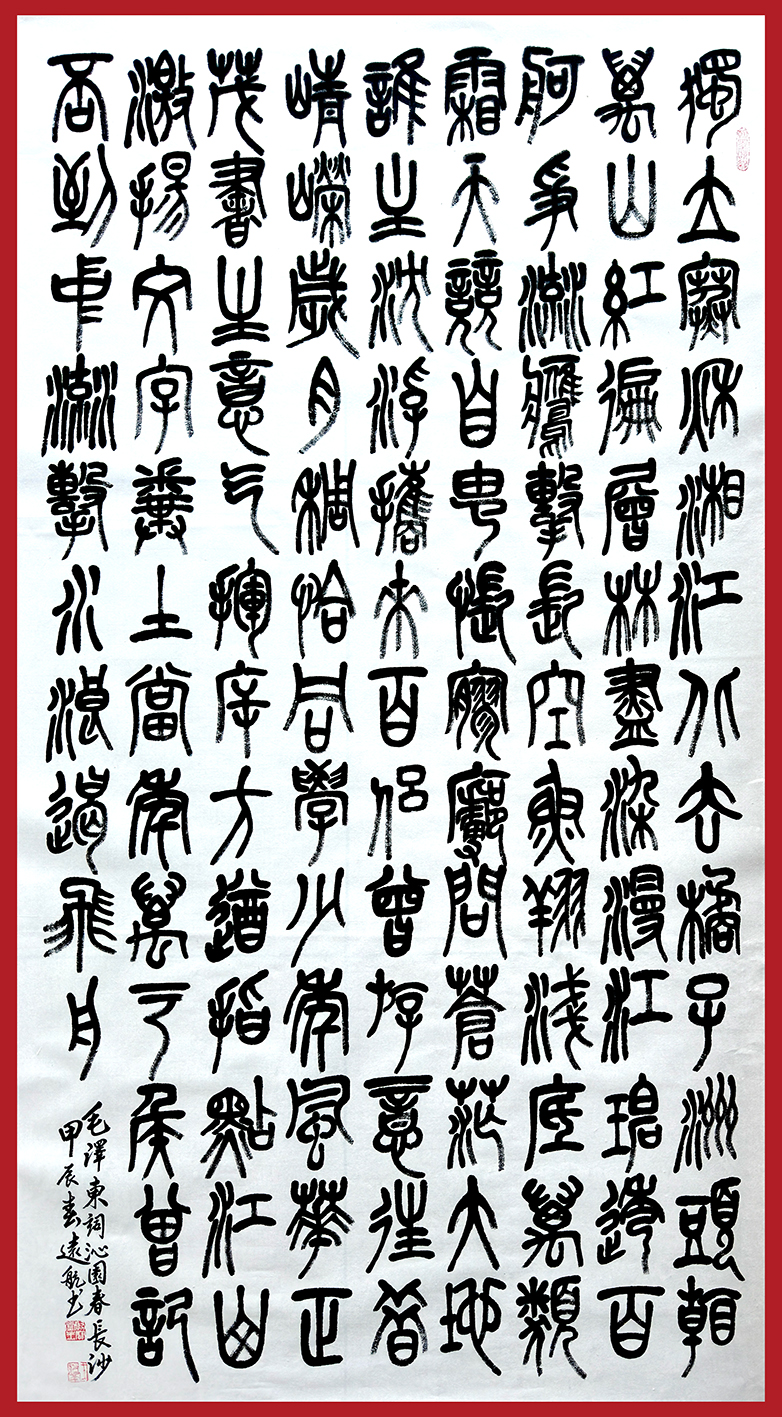 獨立寒秋湘江北去橘子洲頭看
萬山紅遍層林盡染漫江碧透百
舸爭流鷹擊長空魚翔淺底萬類
霜天競自由悵寥廓問蒼茫大地
誰主沈浮攜來百侶曾游憶往昔
崢嶸歲月稠恰同學少年風華正
茂書生意氣揮斥方遒指點江山
激揚文字糞土當年萬戶侯曾記
否到中流擊水浪遏飛舟
毛澤東詞沁園春長沙
甲辰春遠航書